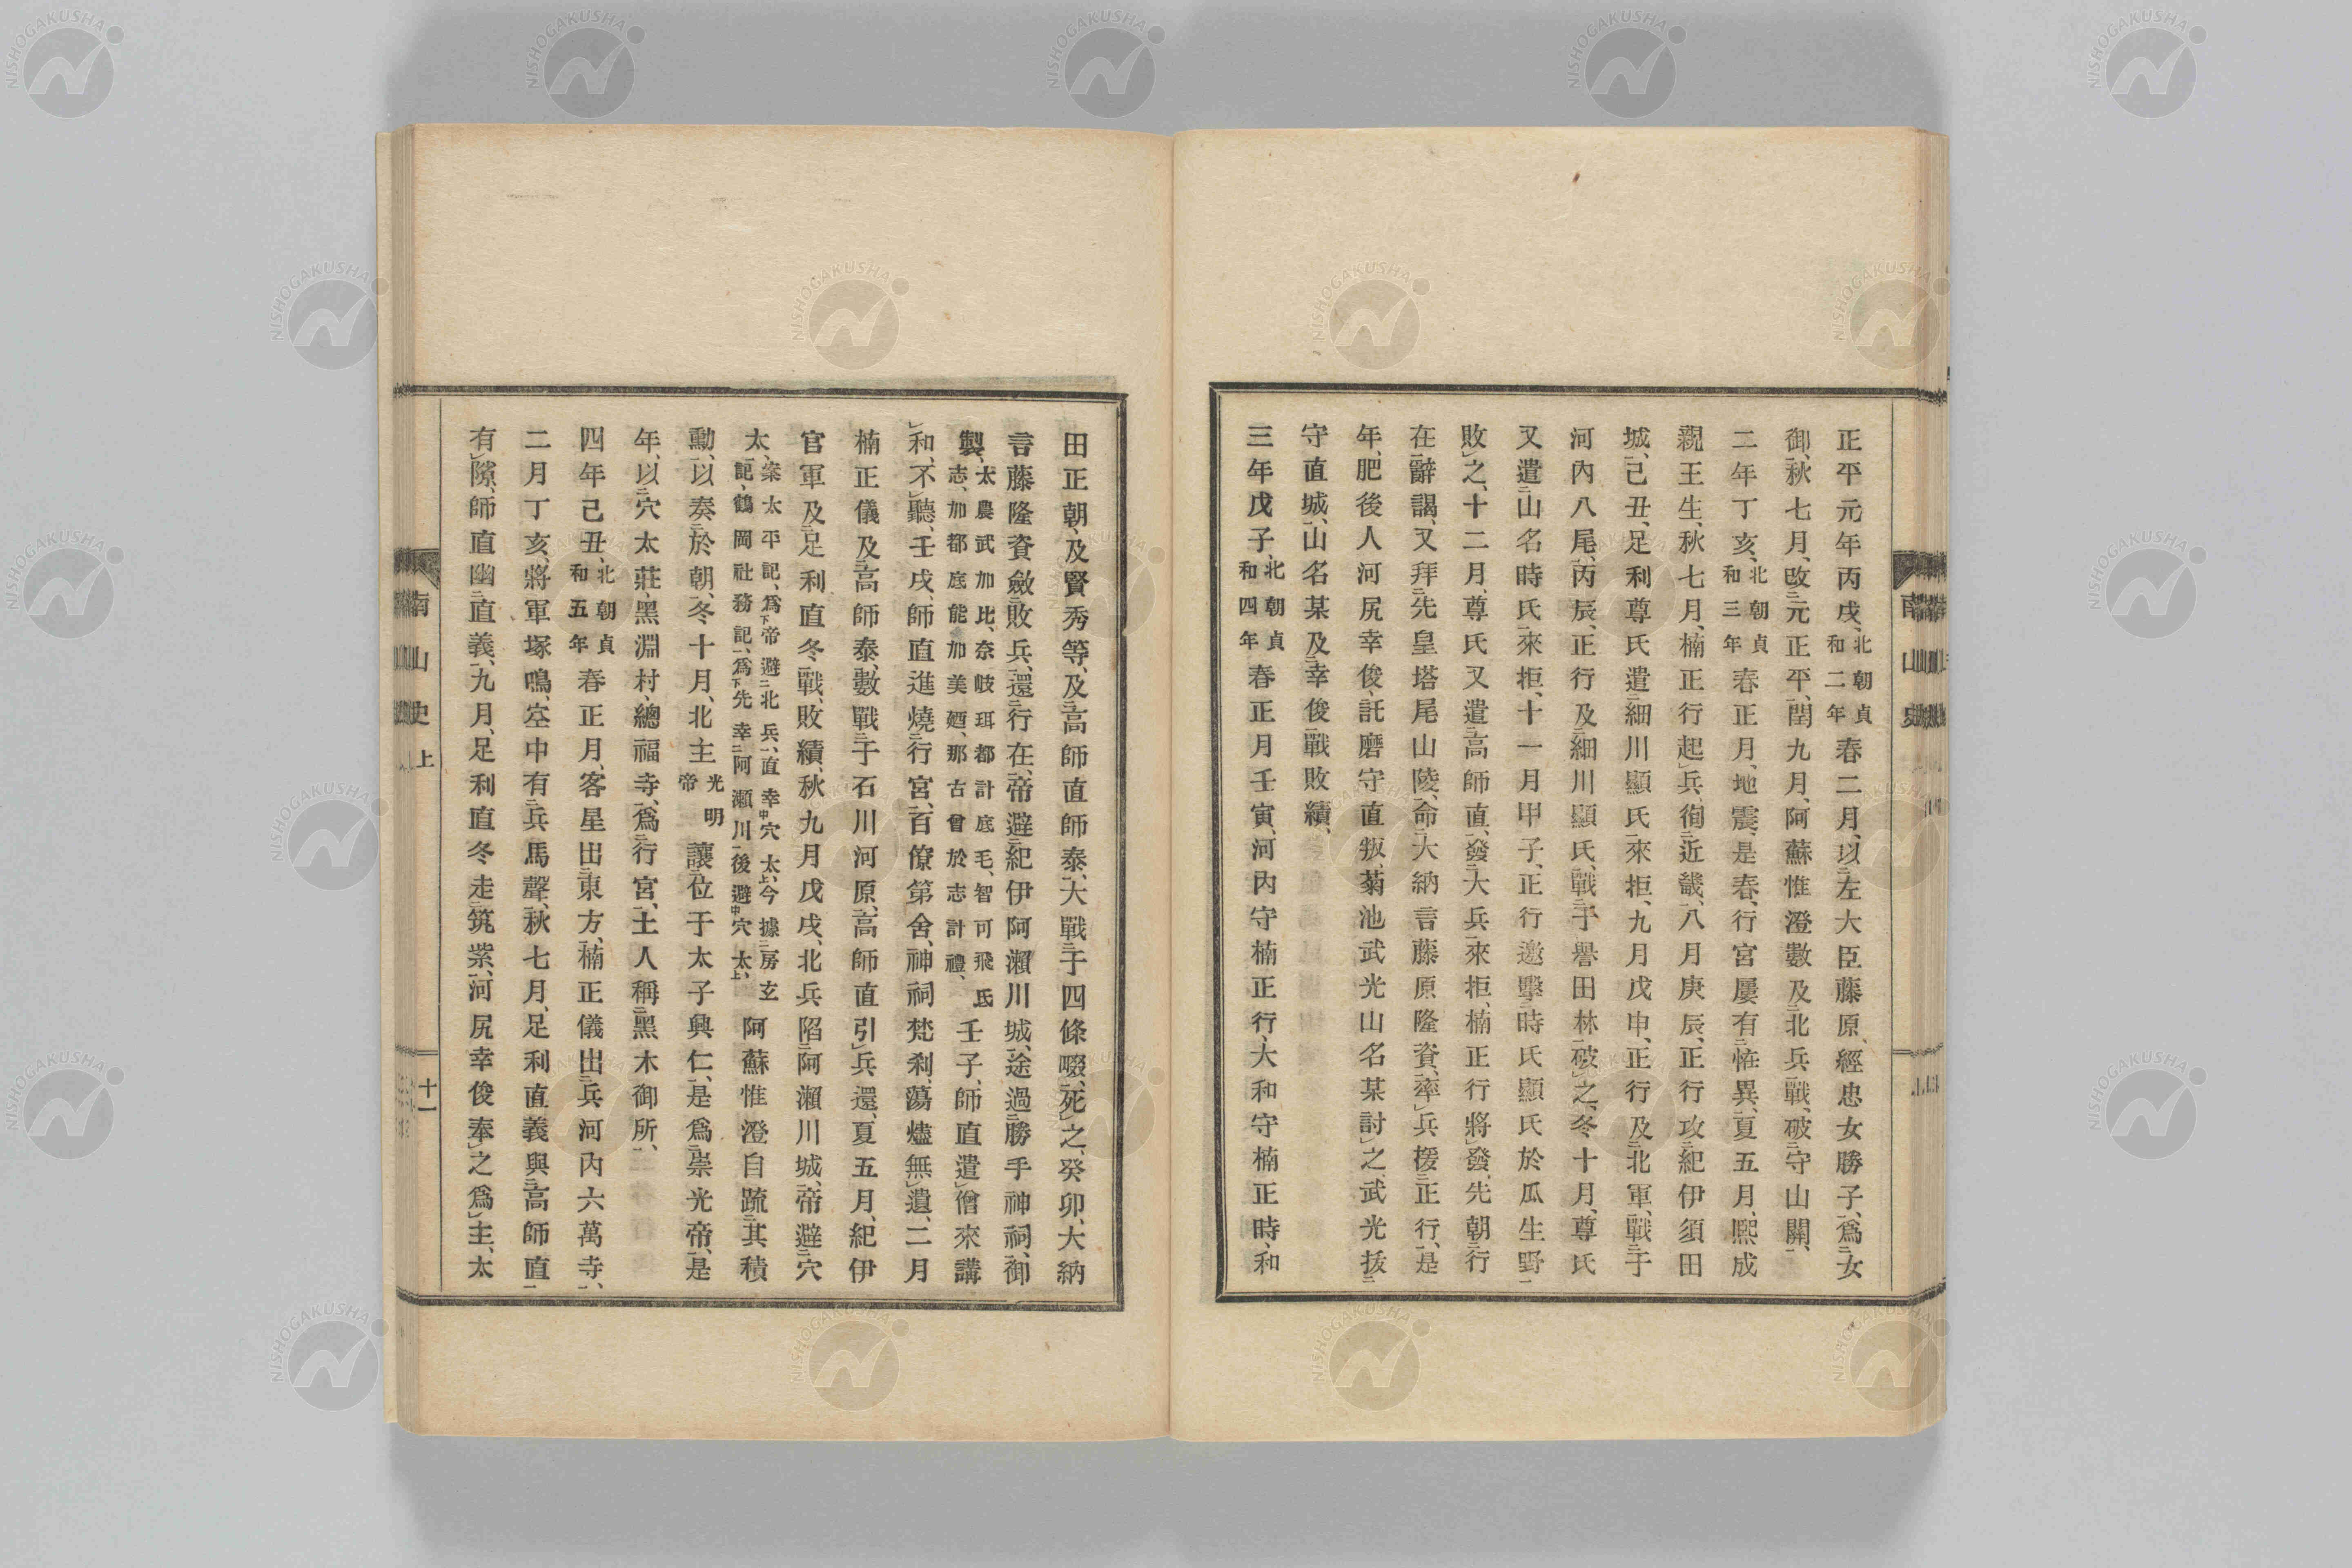 正平元年丙戌、北朝貞和二年春二月、以左大臣藤原經忠女勝子、爲女
御、秋七月、改元正平、閏九月、阿蘇惟澄數及北兵戰、破守山關、
二年丁亥、北朝貞和三年春正月、地震、是春、行宮屢有恠異、夏五月、熙成
親王生、秋七月、楠正行起兵、徇近畿、八月庚辰、正行攻紀伊須田
城、己丑、足利尊氏遣細川顯氏來拒、九月戊申、正行及北軍戰于
河內八尾、丙辰、正行及細川顯氏戰于譽田林、破之、冬十月、尊氏
又遣山名時氏來拒、十一月甲子、正行邀擊時氏顯氏於瓜生野、
敗之、十二月、尊氏又遣高師直、發大兵來拒、楠正行將發、先朝行
在辭謁、又拜先皇塔尾山陵、命大納言藤原隆資、率兵援正行、是
年、肥後人河尻幸俊、託磨守直叛、菊池武光山名某討之、武光拔
守直城、山名某及幸俊戰敗績、
三年戊子、北朝貞和四年春正月壬寅、河內守楠正行、大和守楠正時、和
田正朝、及賢秀等、及高師直師泰、大戰于四條畷、死之、癸卯、大納
言藤隆資斂敗兵、還行在、帝避紀伊阿瀨川城、途過勝手神祠、御
製、太農武加比、奈岐珥都計底毛、智可飛氐志、加都底能加美廼、那古曾於志計禮、壬子、師直遣僧來講
和、不聽、壬戌、師直進燒行宮、百僚第舍、神祠梵刹、蕩燼無遺、二月
楠正儀及高師泰、數戰于石川河原、高師直引兵還、夏五月、紀伊
官軍及足利直冬戰、敗績、秋九月戊戌、北兵陷阿瀨川城、帝避穴
太、案太平記、爲帝避北兵、直幸穴太、今據房玄記、鶴岡社務記、爲先幸阿瀨川、後避穴太、阿蘇惟澄自疏其積
勳、以奏於朝、冬十月、北主光明帝讓位于太子興仁、是爲崇光帝、是
年、以穴太莊、黑淵村、總福寺、爲行宮、土人稱黑木御所、
四年己丑北朝貞和五年春正月、客星出東方、楠正儀出兵河內六萬寺、
二月丁亥、將軍塚鳴、空中有兵馬聲、秋七月、足利直義與高師直
有隙、師直幽直義、九月、足利直冬走筑紫、河尻幸俊奉之爲主、太
南山史 上
十一